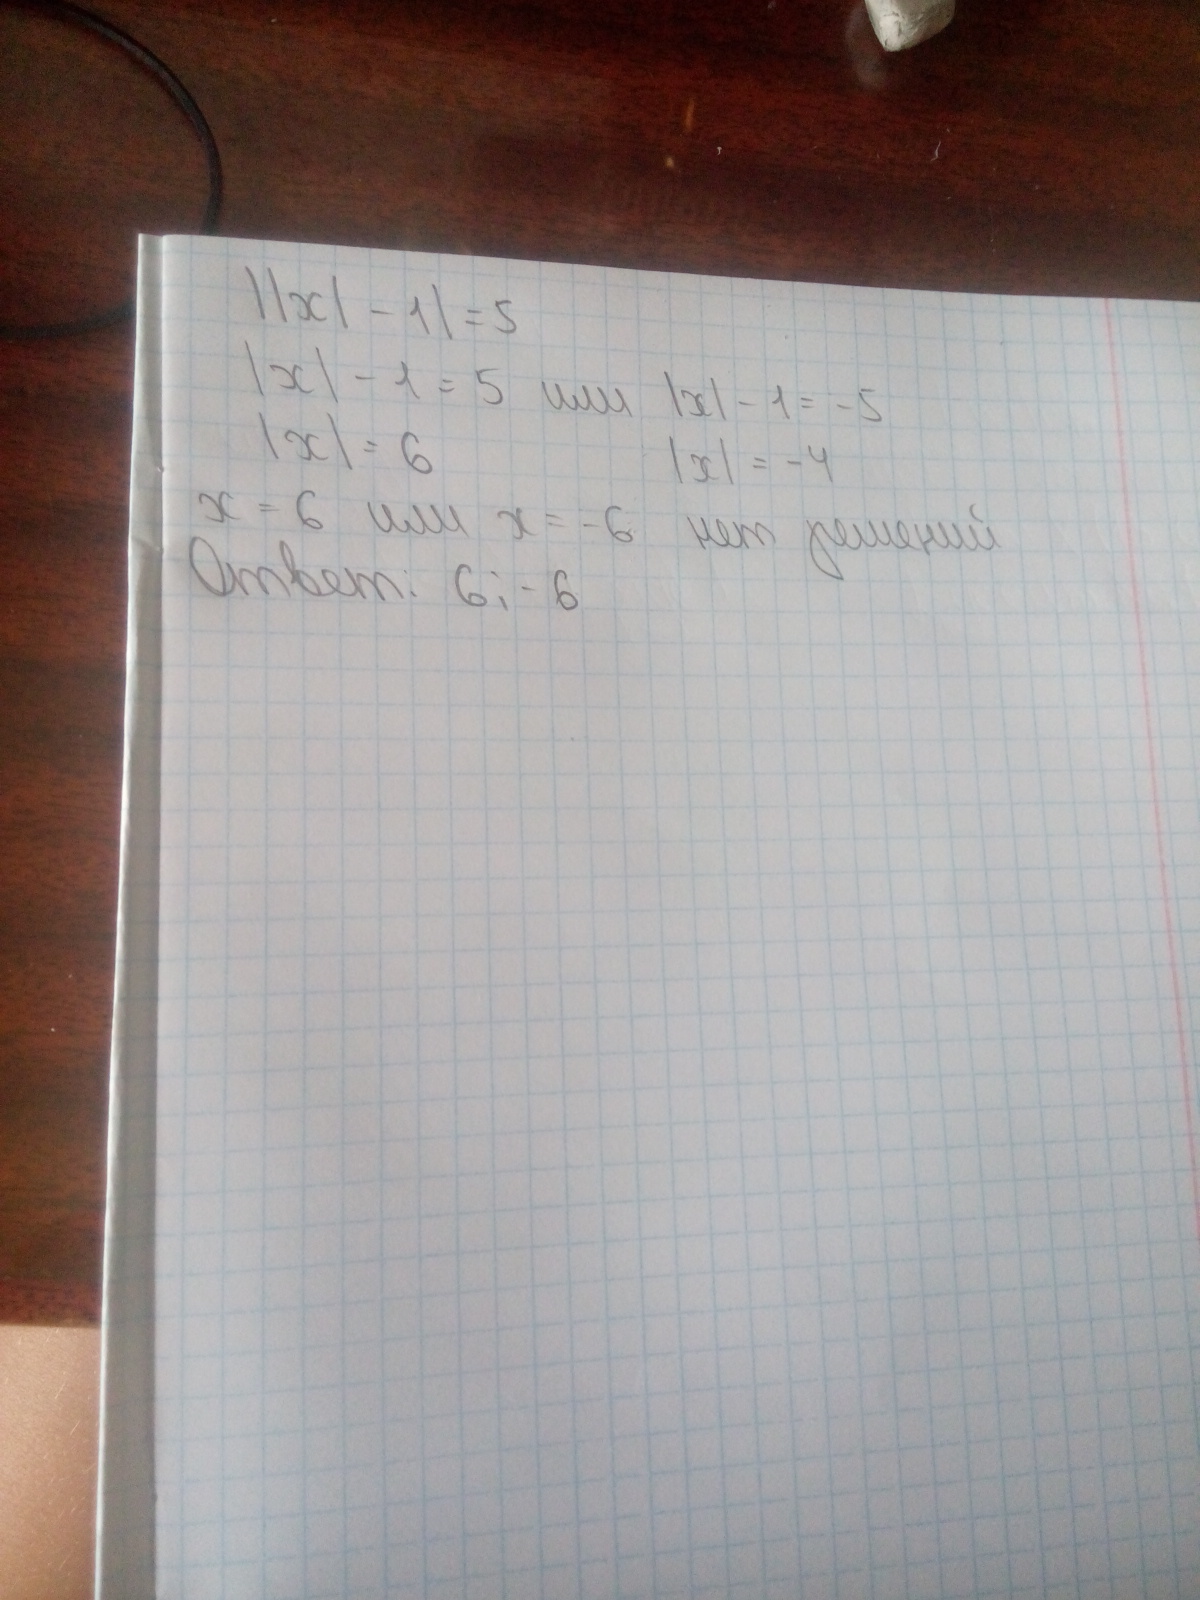 ||x| - 1| = 5
|x| - 1 = 5 или |x| - 1 = -5
|x| = 6 |x| = -4
x = 6 или x = -6 нет решений
Ответ: 6; -6